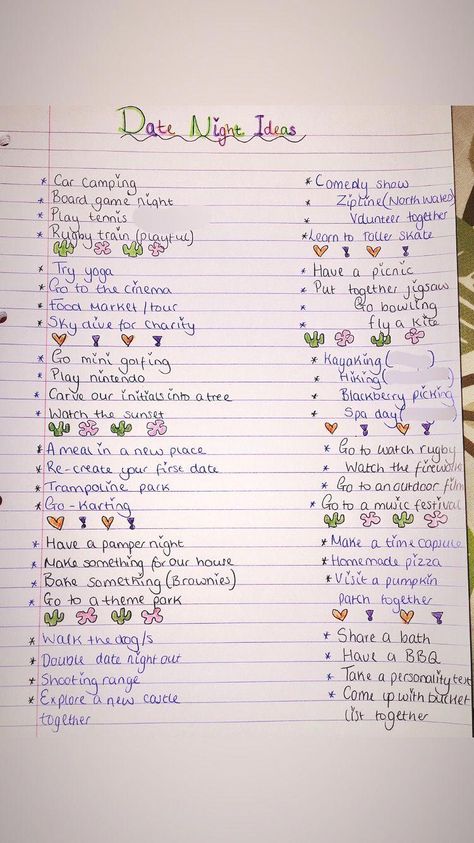 Date Night Ideas
* Car camping
* Board game night
* Play tennis
* Rugby train (playful)
* Try yoga
* Go to the cinema
* Food Market / tour
* Sky dive for charity
* Go mini golfing
* Play nintendo
* Carve our initials into a tree
* Watch the sunset
* A meal in a new place
* Re-create your first date
* Trampoline park
* Go-karting
* Have a pamper night
* Make something for our house
* Bake something (Brownies)
* Go to a theme park
* Walk the dog/s
* Double date night out
* Shooting range
* Explore a new castle
together
* Comedy show
* Zipline (North Wales)
* Volunteer together
* Learn to roller skate
* Have a picnic
* Put together jigsaw
* Go bowling
* fly a kite
* Kayaking (
* Hiking (
* Blackberry picking
* Spa day (
* Go to watch rugby
* Watch the fireworks
* Go to an outdoor film
* Go to a music festival
* Make a time capsule
* Homemade pizza
* Visit a pumpkin
patch together
* Share a bath
* Have a BBQ
* Take a personality test
* Come up with bucket
list together